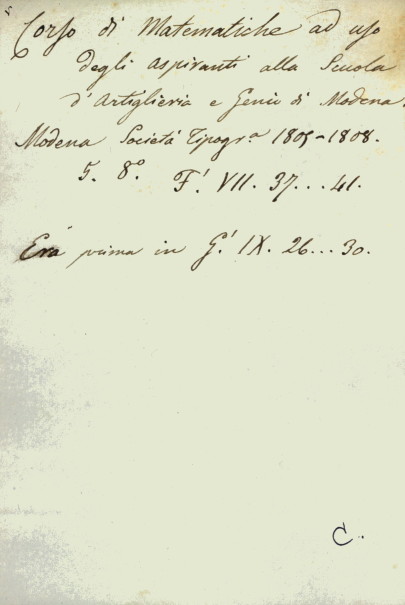 Corso di Matematiche ad uso
degli aspiranti alla Scuola
d'Artiglieria e Genio di Modena.
Modena Società Tipogr.a 1805-1808.
5. 8.° F.' VII. 37...41.
Era prima in G.' IX. 26...30.
C.